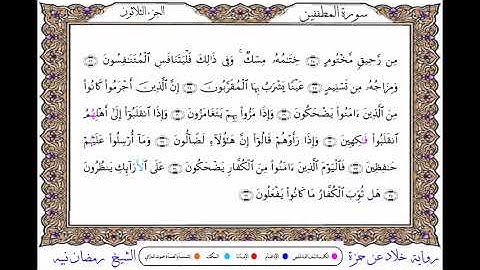 سورة المطففين
الجزء الثلاثون
مِن رَّحِيقٍ مَّخْتُومٍ خِتَٰمُهُۥ مِسْكٌ ۚ وَفِى ذَٰلِكَ فَلْيَتَنَافَسِ ٱلْمُتَنَٰفِسُونَ
وَمِزَاجُهُۥ مِن تَسْنِيمٍ عَيْنًا يَشْرَبُ بِهَا ٱلْمُقَرَّبُونَ إِنَّ ٱلَّذِينَ أَجْرَمُوا۟ كَانُوا۟
مِنَ ٱلَّذِينَ ءَامَنُوا۟ يَضْحَكُونَ وَإِذَا مَرُّوا۟ بِهِمْ يَتَغَامَزُونَ وَإِذَا ٱنقَلَبُوٓا۟ إِلَىٰٓ أَهْلِهُمُ
ٱنقَلَبُوا۟ فَٰكِهِينَ وَإِذَا رَأَوْهُمْ قَالُوٓا۟ إِنَّ هَٰٓؤُلَآءِ لَضَآلُّونَ وَمَآ أُرْسِلُوا۟ عَلَيْهِمْ
حَٰفِظِينَ فَٱلْيَوْمَ ٱلَّذِينَ ءَامَنُوا۟ مِنَ ٱلْكُفَّارِ يَضْحَكُونَ عَلَى ٱلْأَرَآئِكِ يَنظُرُونَ
هَلْ ثُوِّبَ ٱلْكُفَّارُ مَا كَانُوا۟ يَفْعَلُونَ
رواية خلاد عن حمزة
الشيخ رمضان نبيه